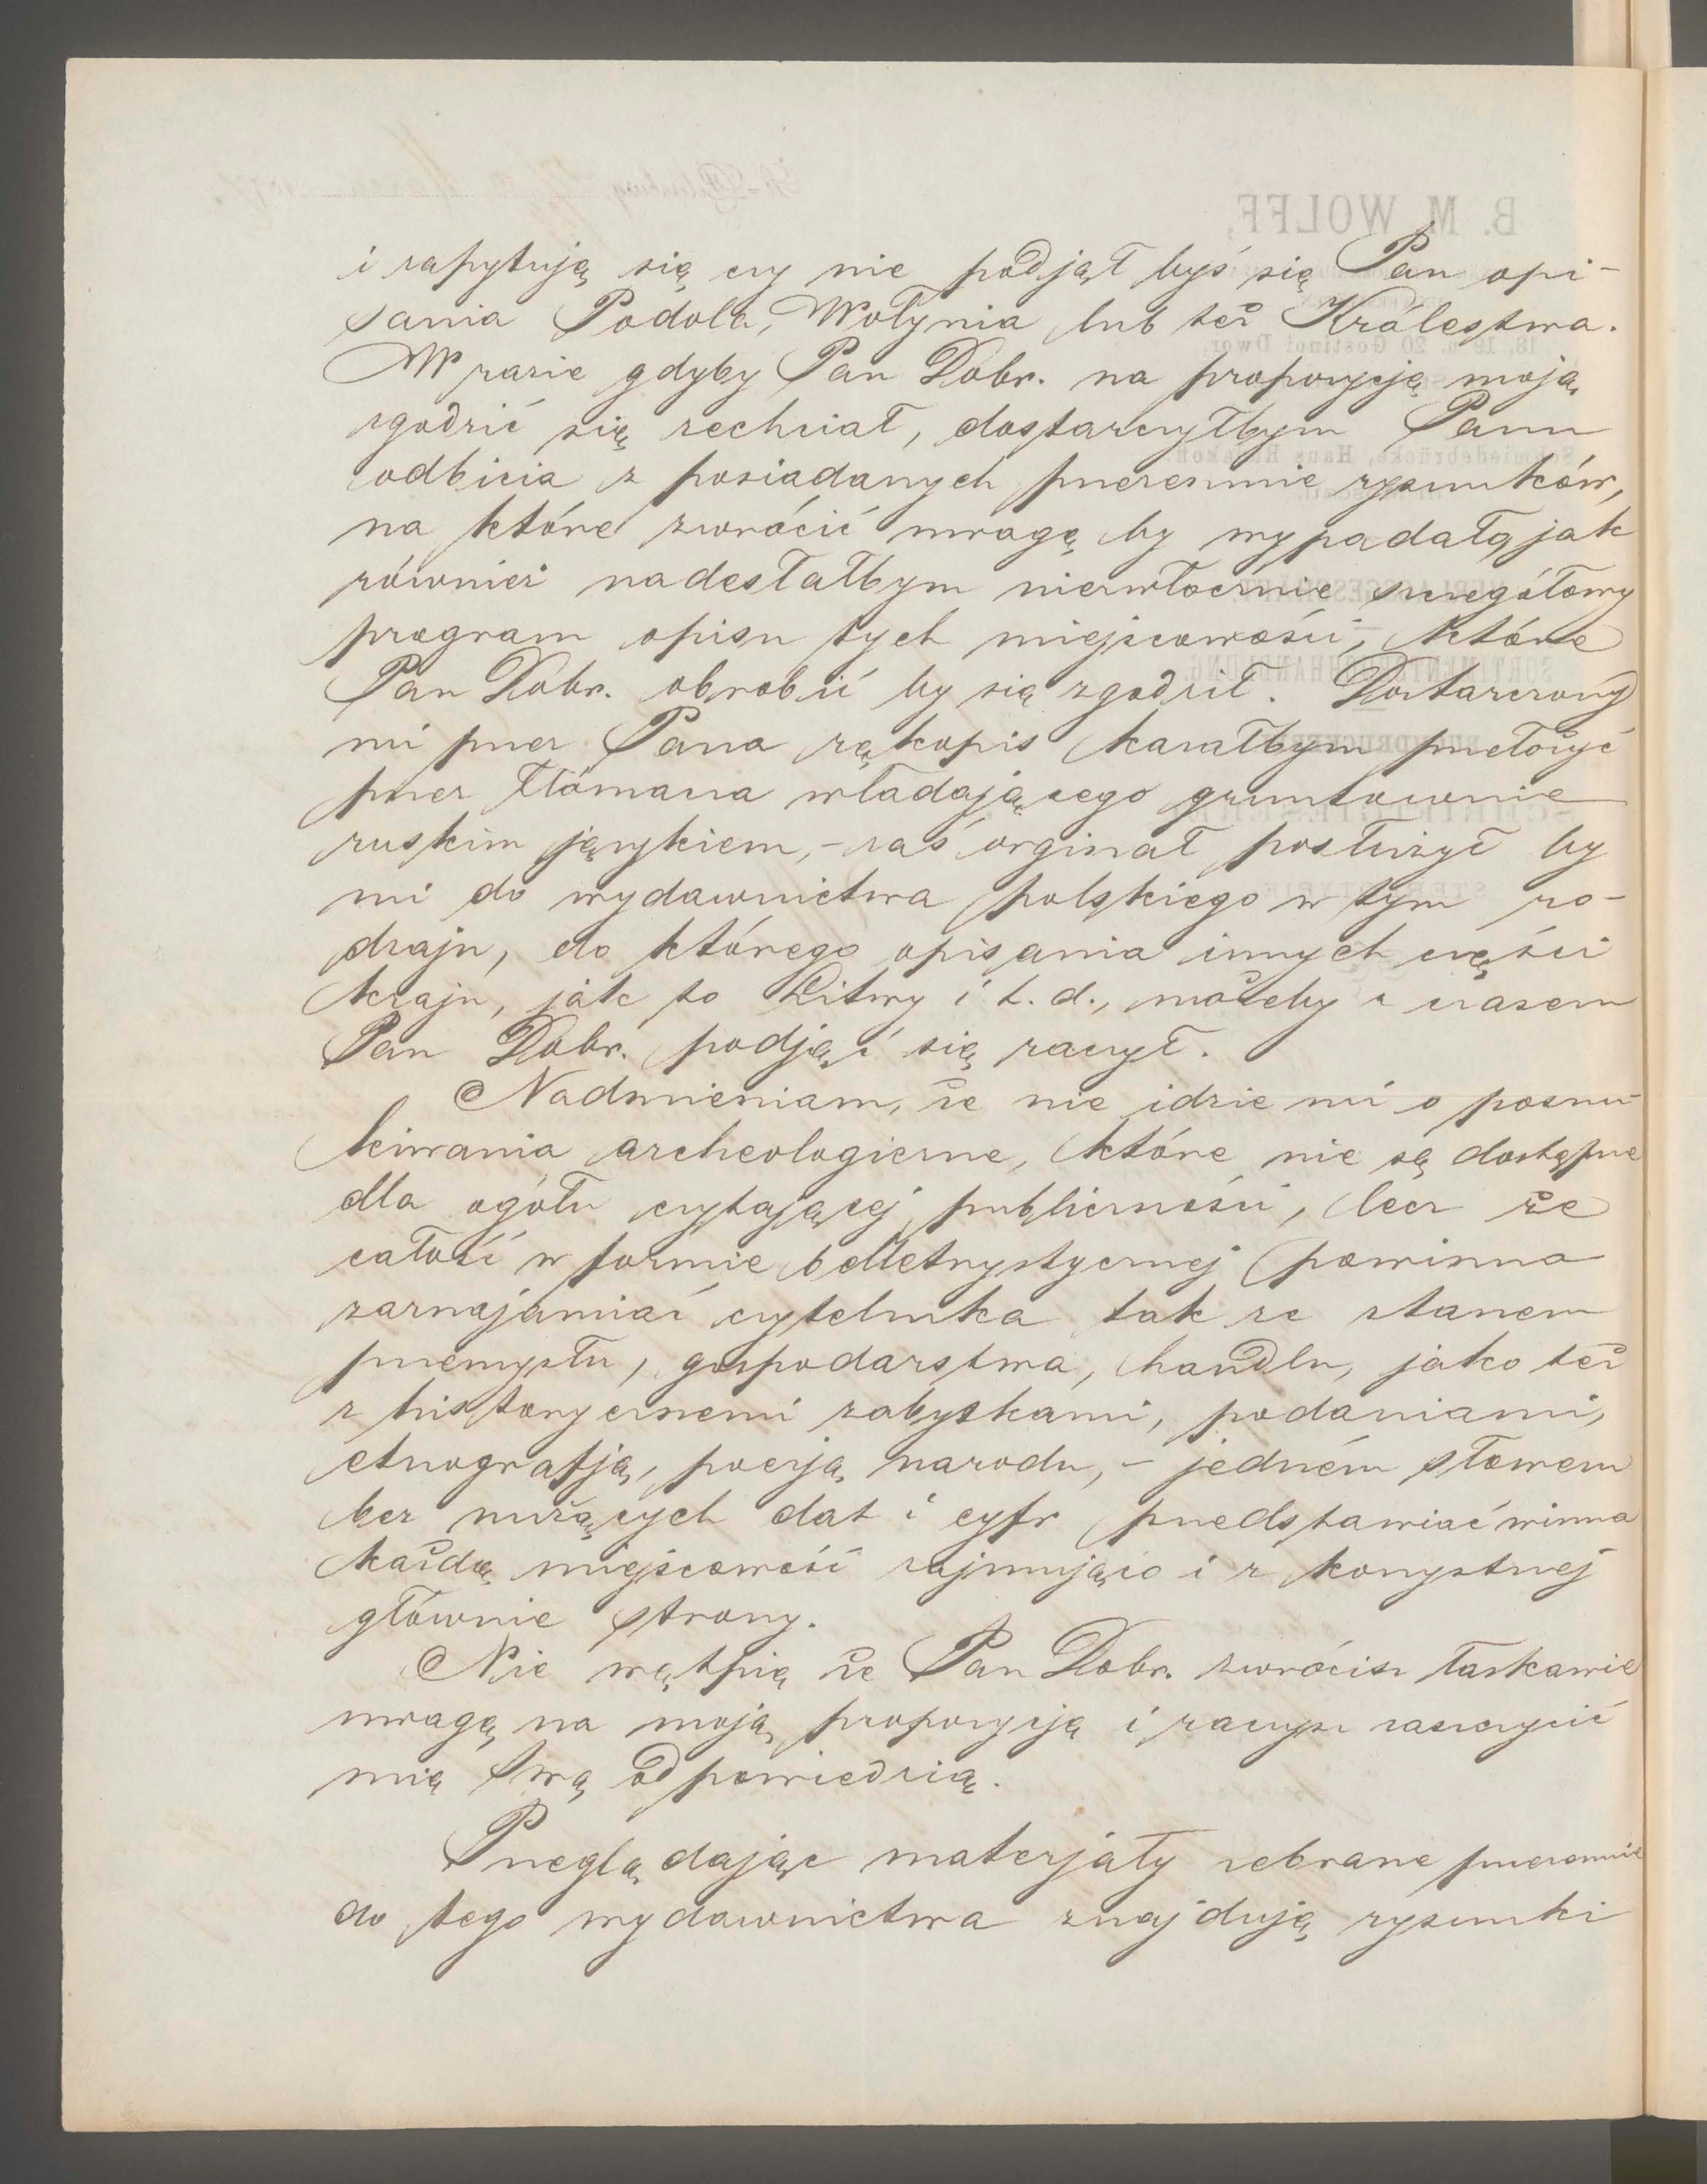 i zapytują się czy nie podjął byś się Pan opi-
sania Podola, Wołynia lub też Królestwa.
W razie gdyby Pan Dobr. na propozycją moją
zgodzić się zechciał, dostarczyłbym Panu
odbicia z posiadanych przezemnie rysunków,
na które zwrócić uwagę by wypadało, jak
również nadesłałbym niezwłocznie szczegółowy
program opisu tych miejscowości, które
Pan Dobr. obrobić by się zgodził. Dostarczony
mi przez Pana rękopis kazałbym przełożyć
przez tłómacza władającego gruntownie
ruskim językiem, - zaś orginał posłużył by
mi do wydawnictwa polskiego w tym ro-
dzaju, do którego opisania innych części
kraju, jak to Litwy i t. d., możeby z czasem
Pan Dobr. podjąć się raczył.
Nadmieniam, że nie idzie mi o poszu-
kiwania archeologiczne, które nie są dostępne
dla ogółu czytającej publiczności, lecz że
całość w formie belletrystycznej powinna
zaznajamiać czytelnika tak ze stanem
przemysłu, gospodarstwa, handlu, jako też
z historycznemi zabytkami, podaniami,
etnografją, poezją narodu, - jedném słowem
bez nużących dat i cyfr przedstawiać winna
każdą miejscowość zajmująco i z korzystnej
głównie strony.
Nie wątpię że Pan Dobr. zwrócisz łaskawie
uwagę na moją propozycją i raczysz zaszczycić
mię swą odpowiedzią.
Przeglądając materjały zebrane przezemnie
do tego wydawnictwa znajdują rysunki
B. M. WOLFF,